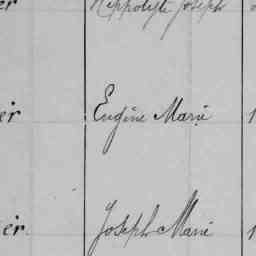 er Hippolyte Joseph
er Eugène Marie 1
er Joseph Marie 1